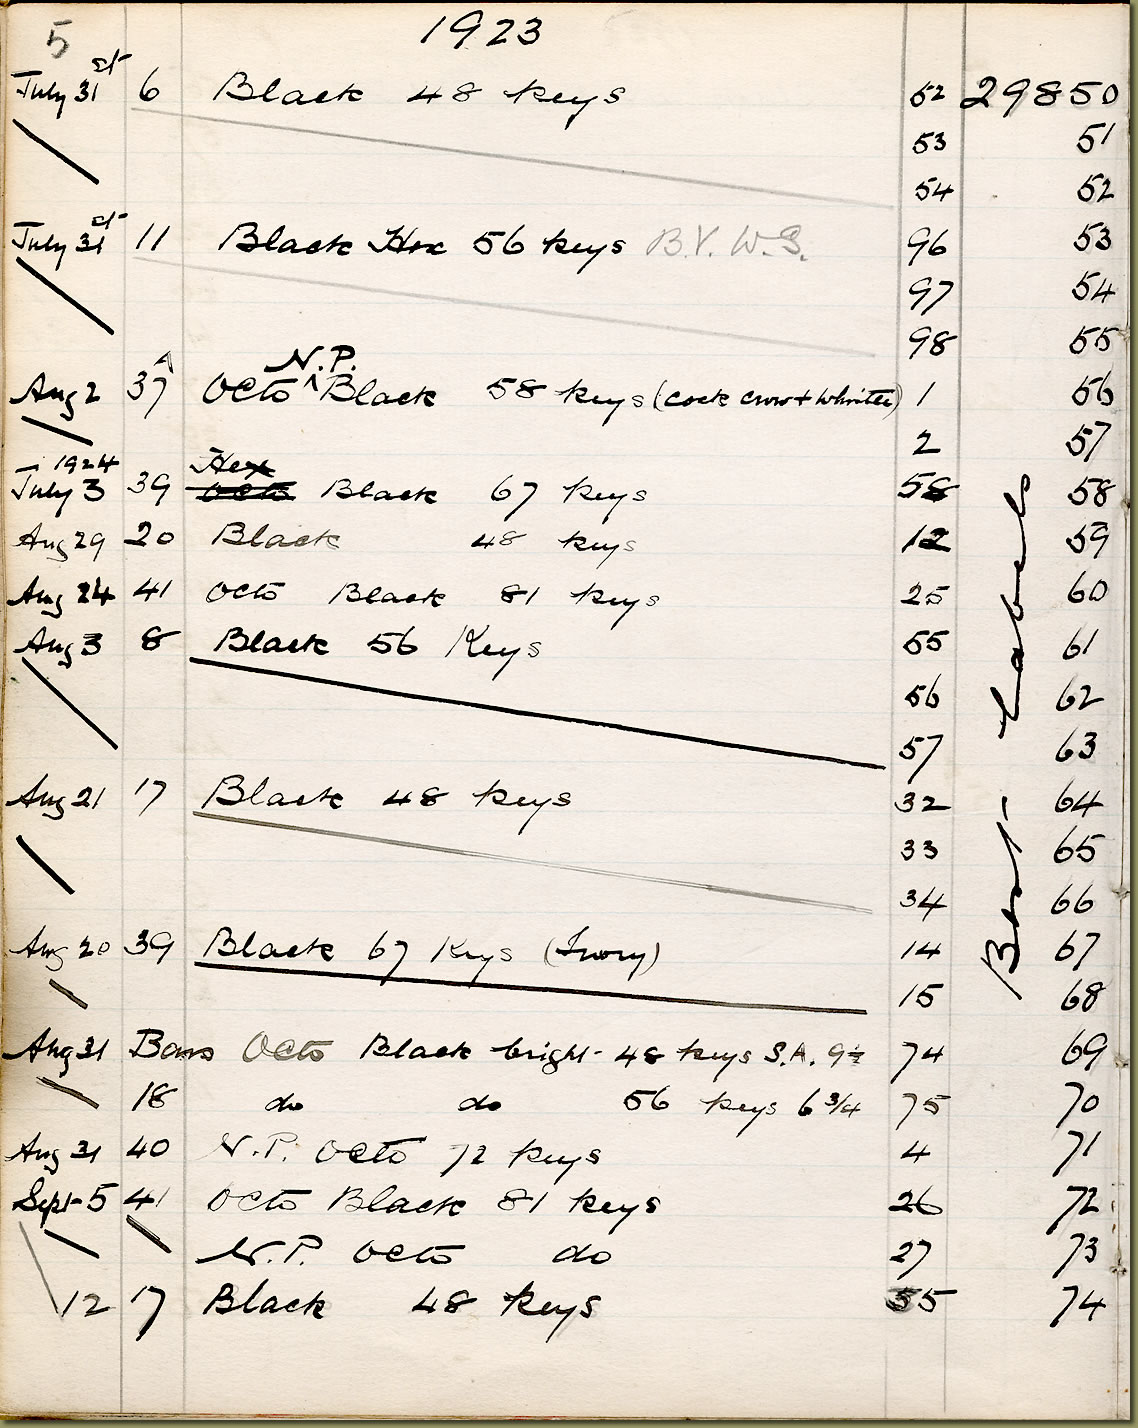 5 1923
July 31st 6 Black 48 keys 52 29850
53 51
54 52
July 31st 11 Black Hex 56 keys B.V. W.S. 96 53
97 54
98 55
Aug 2 37A Octo N.P. Black 58 keys (cock crow + Whistle) 1 56
2 57
1924
July 3 39 Octo Hex Black 67 keys 58 58
Aug 29 20 Black 48 keys 12 59
Aug 24 41 Octo Black 81 keys 25 60
Aug 3 8 Black 56 Keys 55 61
56 62
57 63
Aug 21 17 Black 48 keys 32 64
33 65
34 66
Aug 20 39 Black 67 Keys (Ivory) 14 67
15 68
Aug 31 Bass Octo Black bright 48 keys S.A. 9½ 74 69
18 do do 56 keys 6 3/4 75 70
Aug 31 40 N.P. Octo 72 keys 4 71
Sept 5 41 Octo Black 81 keys 26 72
N.P. Octo do 27 73
12 17 Black 48 keys 35 74
Best Labels